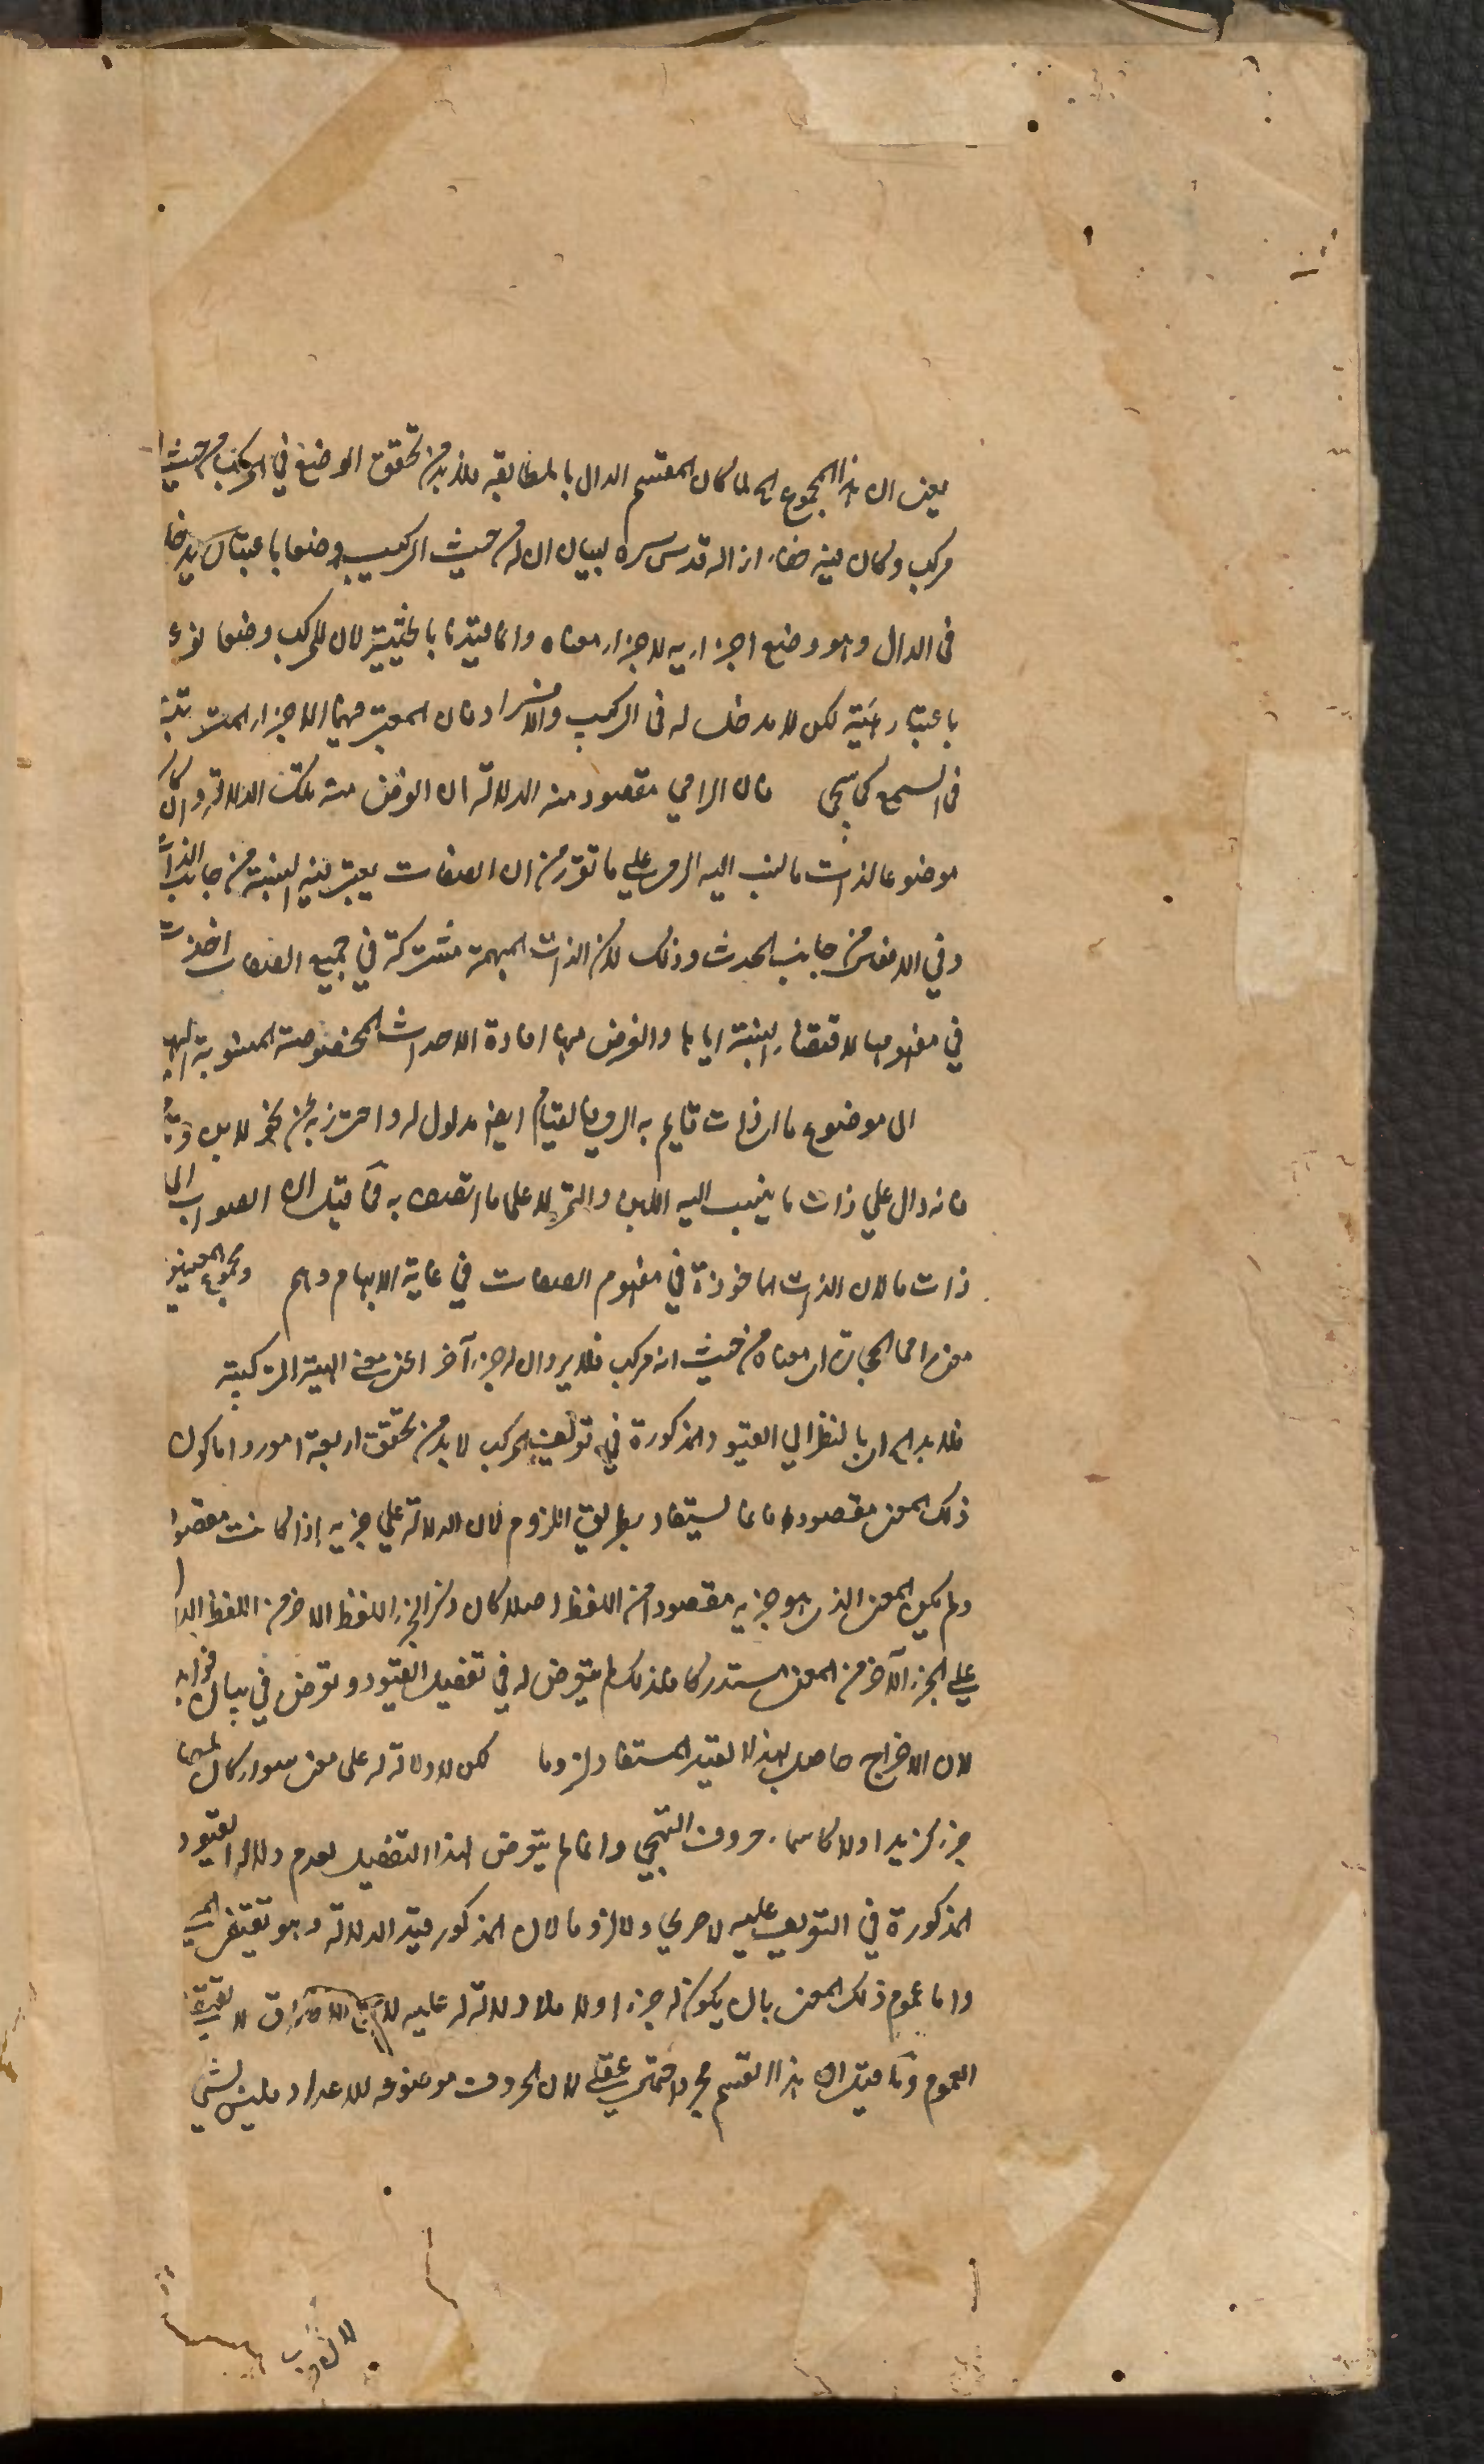 يعني ان هذا المجموع الخ لما كان المقسم الدال بالمطابقة فلا بد من تحقق الوضع في المركب من حيث
مركب وكان فيه خفاء ازاله قدس سره ببيان ان له من حيث التركيب وضعا باعتبار يدخل
في الدال وهو وضع اجزايه لاجزاء معناه وانما قيدنا بالحيثية لان للمركب وضعا نوعيا
باعتبار هيئة لكن لا مدخل له في التركيب والافراد فان المعتبر فيهما الاجزاء المترتبة
في السمع كما سيجي فان الرامي مقصود منه الدلالة ان الغرض منه تلك الدلالة وان كان
موضوعا لذات ما نسب اليه الرمي على ما تقرر من ان الصفات يعتبر فيه النسبة من جانب الذات
وفي الافعال من جانب الحدث وذلك لان الذات المبهمة مشتركة في جميع الصفات اخذت
في مفهومها لاقتضاء النسبة اياها والغرض منها افادة الاحداث المخصوصة المنسوبة اليها
الى موضوع ما اى ذات قايم به الرمي فالقيام ايضا مدلول له واحترز به عن نحو لابن وتامر
فانه دال على ذات ما ينسب اليه اللبن والتمر لا على ما اتصف به فما قيل ان الصواب الى
ذات ما لان الذات الماخوذة في مفهوم الصفات في غاية الابهام وهم ومجموع المعنيين
معنى رامي الحجارة اى معناه من حيث انه مركب فلا يرد ان له جزء آخر اعني معنى الهيئة التركيبية
فلا بد الخ اى بالنظر الى القيود المذكورة في تعريف المركب لا بد من تحقق اربعة امور واما كون
ذلك المعنى مقصودا فانما يستفاد بطريق اللزوم لان الدلالة على جزيه اذا كانت مقصودة
ولم يكن المعنى الذي هو جزيه مقصودا من اللفظ اصلا كان ذكر الجزء اللفظ الاخر من اللفظ الدال
على الجزء الآخر من المعنى مستدركا فلذلك لم يتعرض له في تفصيل القيود وتعرض في بيان فوايده
لان الاخراج حاصل بهذا القيد المستفاد لزوما لكن لا دلالة له على معنى سواء كان لمعناه
جزء كزيد او لا كاسماء حروف التهجي وانما لم يتعرض لهذا التفصيل لعدم دلالة القيود
المذكورة في التعريف عليه لا صريحا ولا لزوما لان المذكور قيد الدلالة وهو تقتضي المعنى
واما عموم ذلك المعنى بان يكون له جزء او لا فلا دلالة له عليه لا الاحتراق لا تقتضي
العموم وما قيل ان هذا القسم مجرد احتمال عقلي لان الحروف موضوعة للاعداد فليس بشي